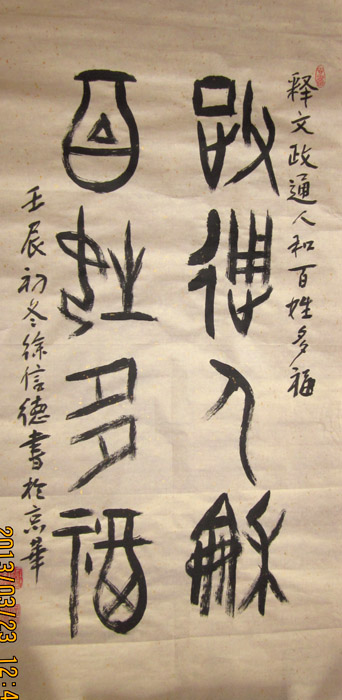 释文政通人和百姓多福
政通人龢
百姓多福
壬辰初冬徐信德書於京華
2013/03/23 12:4